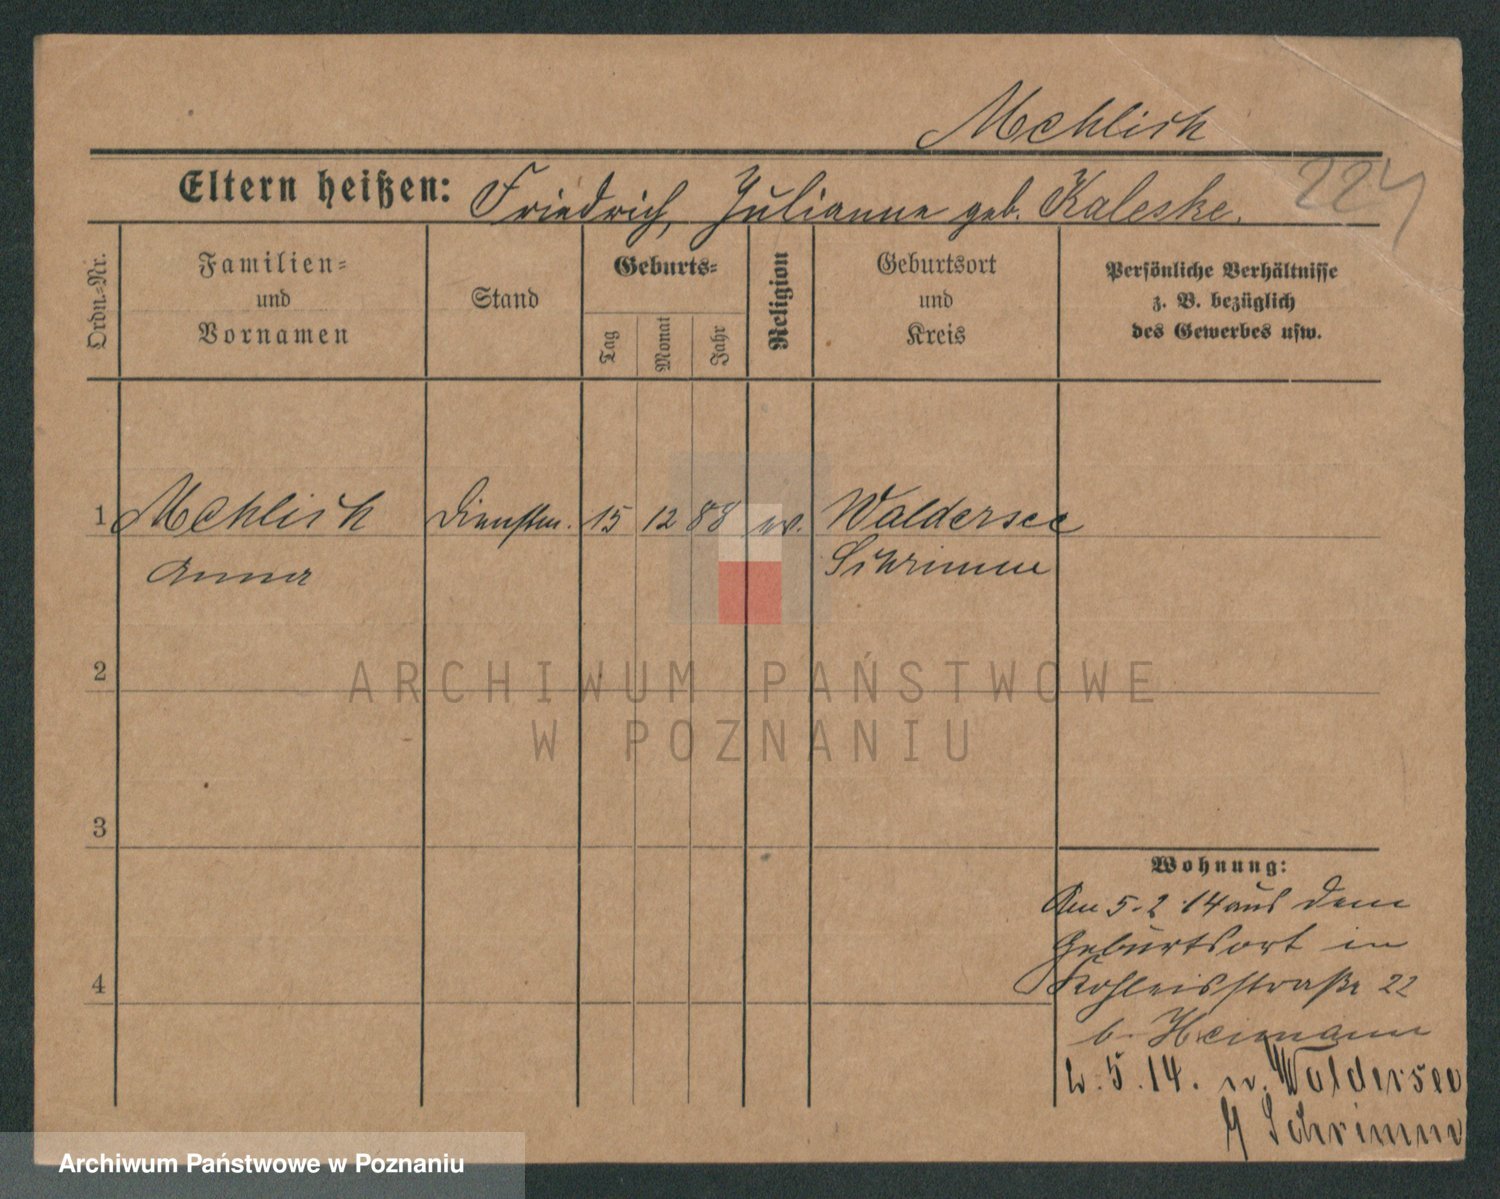 Mehlich
Eltern heißen: Friedrich, Julianne geb. Kaleske.
224
Ordn.=Nr.
Familien=
und
Vornamen
Stand
Geburts=
Tag
Monat
Jahr
Religion
Geburtsort
und
Kreis
Persönliche Verhältnisse
z. B. bezüglich
des Gewerbes usw.
1 Mehlich Dienstm. 15 12 88 ev. Waldersee
Anna Schrimm
2
3
4
Wohnung:
Am 5.2.14 aus dem
Geburtsort in
Kohleisstraße 22
b. Heimann
2.5.14. n. Waldersee
Schrimm
ARCHIWUM PAŃSTWOWE
W POZNANIU
Archiwum Państwowe w Poznaniu